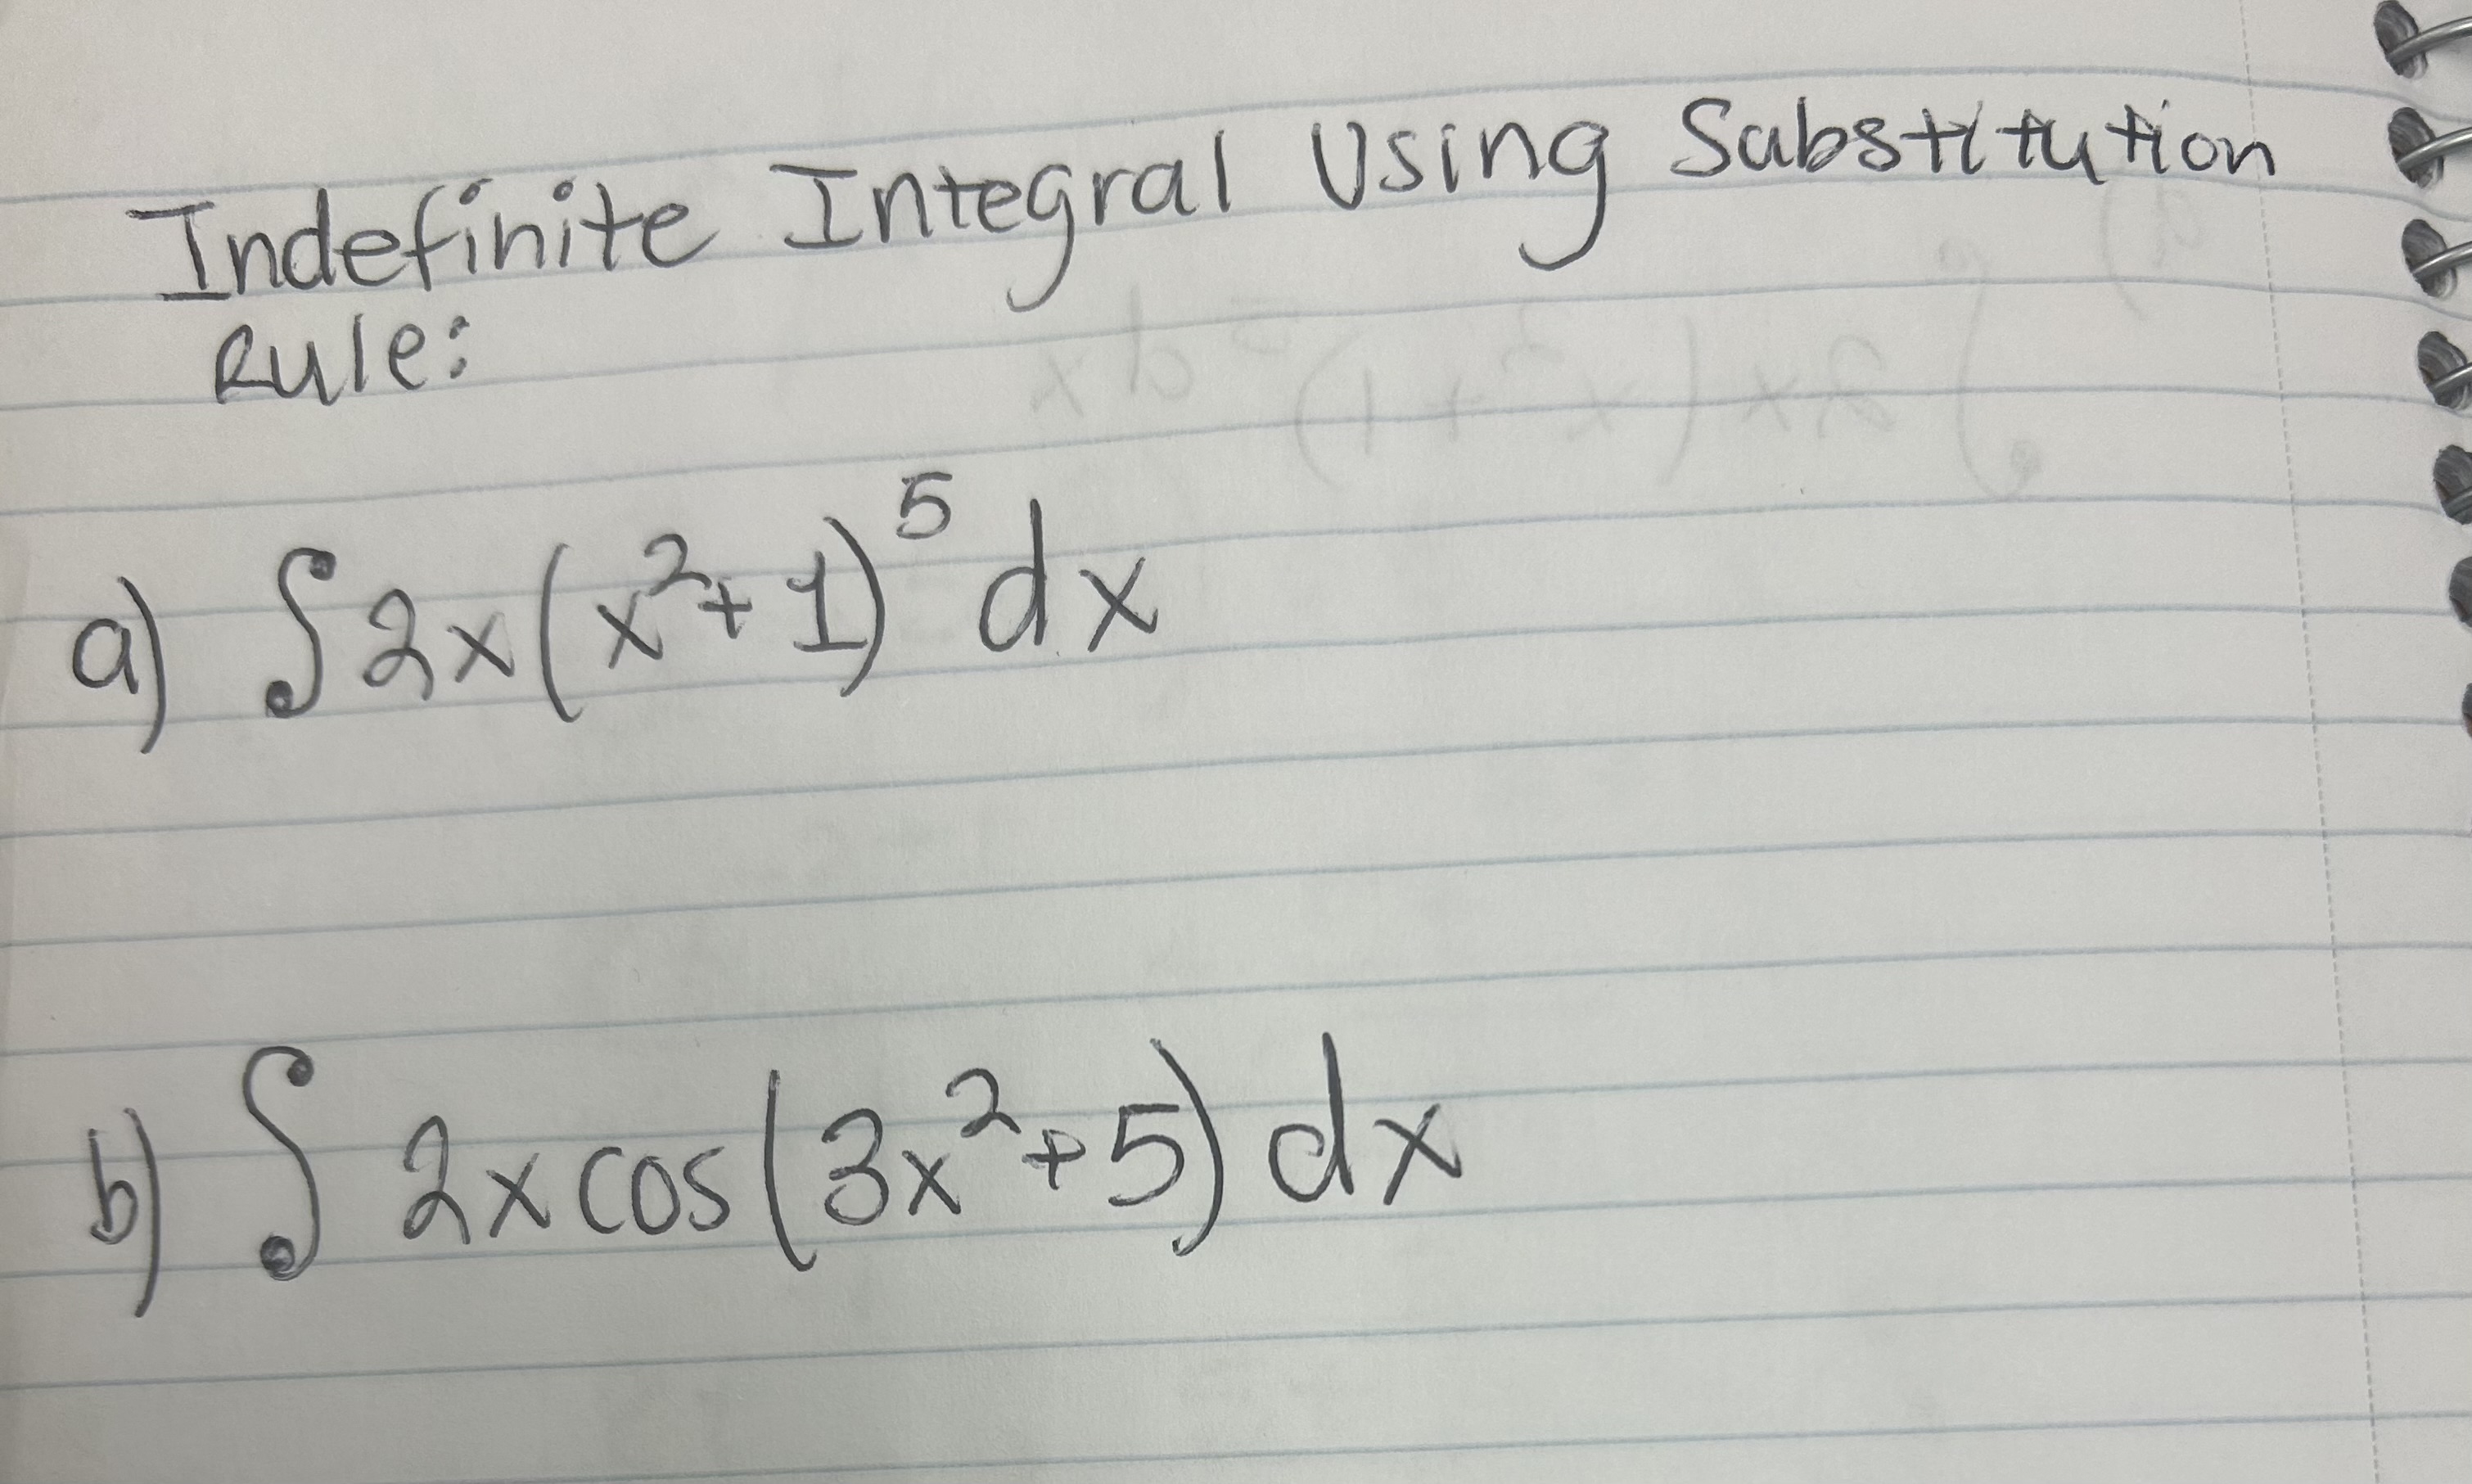 Indefinite Integral Using Substitution
Rule:
a) ∫2x(x²+1)⁵ dx
b) ∫ 2x cos(3x²+5) dx